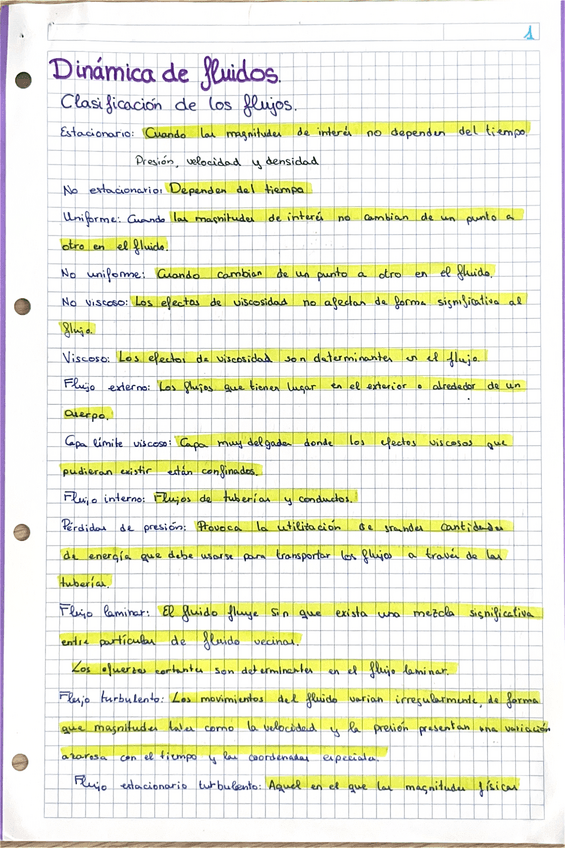 1
Dinámica de fluidos.
Clasificación de los flujos.
Estacionario: Cuando las magnitudes de interés no dependen del tiempo.
Presión, velocidad y densidad
No estacionario: Dependen del tiempo
Uniforme: Cuando las magnitudes de interés no cambian de un punto a
otro en el fluido.
No uniforme: Cuando cambian de un punto a otro en el fluido.
No viscoso: Los efectos de viscosidad no afectan de forma significativa al
flujo.
Viscoso: Los efectos de viscosidad son determinantes en el flujo.
Flujo externo: Los flujos que tienen lugar en el exterior o alrededor de un
cuerpo.
Capa límite viscoso: Capa muy delgada donde los efectos viscosos que
pudieran existir están confinados.
Flujo interno: Flujos de tuberías y conductos.
Pérdidas de presión: Provoca la utilitación de grandes cantidades
de energía que debe usarse para transportar los flujos a través de las
tuberías.
Flujo laminar: El fluido fluye sin que exista una mezcla significativa
entre partículas de fluido vecinas.
Los esfuerzos cortantes son determinantes en el flujo laminar.
Flujo turbulento: Los movimientos del fluido varian irregularmente, de forma
que magnitudes tales como la velocidad y la presión presentan una variación
azarosa con el tiempo y las coordenadas especiales.
Flujo estacionario turbulento: Aquel en el que las magnitudes físicas